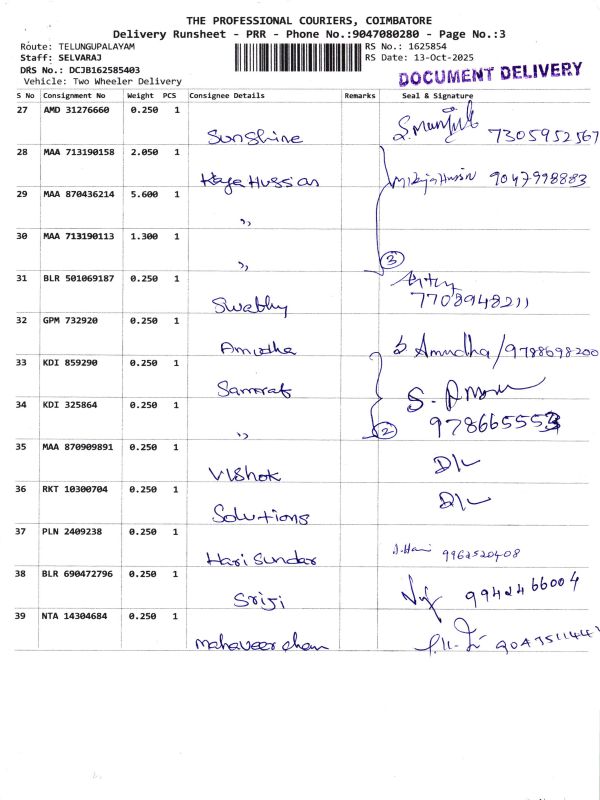 THE PROFESSIONAL COURIERS, COIMBATORE
Delivery Runsheet - PRR - Phone No.:9047080280 - Page No.:3
Route: TELUNGUPALAYAM RS No.: 1625854
Staff: SELVARAJ RS Date: 13-Oct-2025
DRS No.: DCJB162585403 DOCUMENT DELIVERY
Vehicle: Two Wheeler Delivery
S No Consignment No Weight PCS Consignee Details Remarks Seal & Signature
27 AMD 31276660 0.250 1
Sunshine 7305952567
28 MAA 713190158 2.050 1
Haja Hussian 9047998883
29 MAA 870436214 5.600 1
"
30 MAA 713190113 1.300 1
" 3
31 BLR 501069187 0.250 1
Swathy 7708948211
32 GPM 732920 0.250 1
Amutha Amudha/9788698200
33 KDI 859290 0.250 1
Samrat
34 KDI 325864 0.250 1
" 2 9786655553
35 MAA 870909891 0.250 1
Vishok D/L
36 RKT 10300704 0.250 1
Solutions D/L
37 PLN 2409238 0.250 1
Hari Sundar 9962520408
38 BLR 690472796 0.250 1
Sriji 9942466004
39 NTA 14304684 0.250 1
mahaveer chan